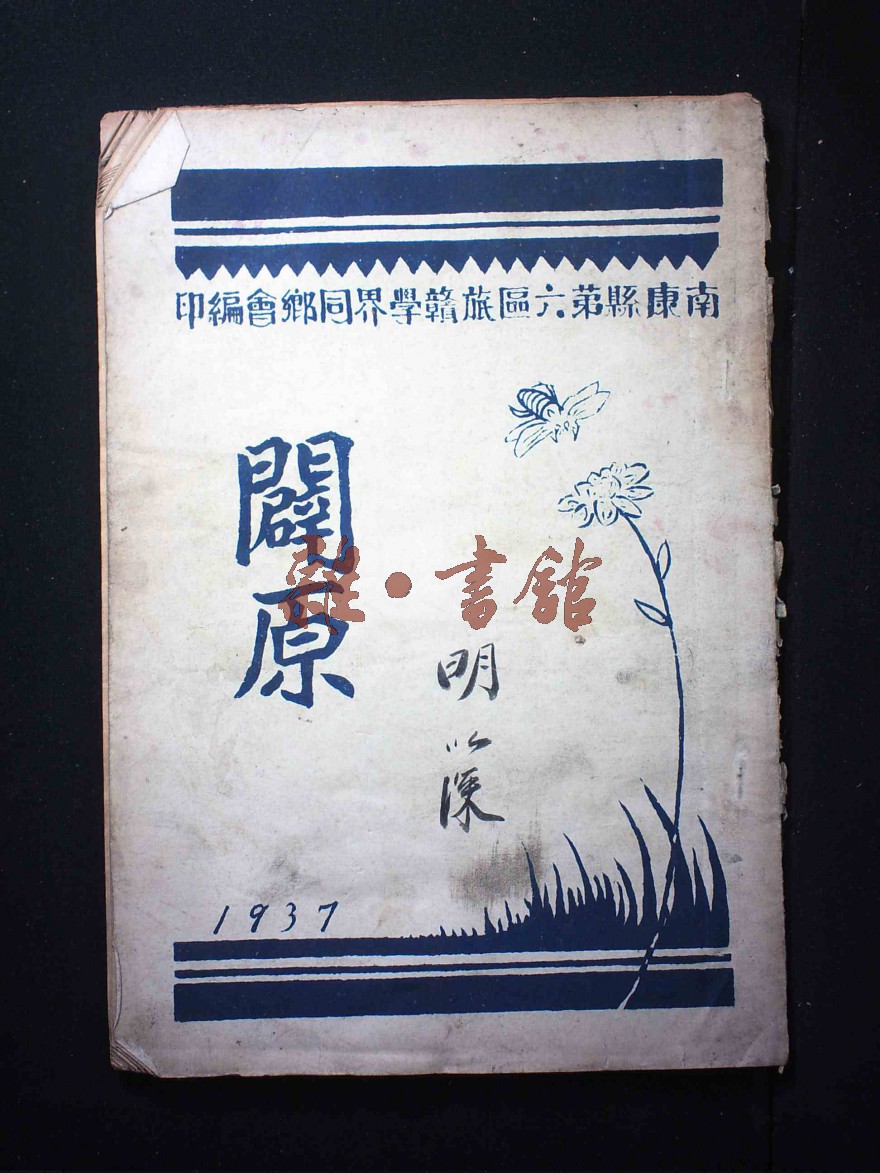 南康縣第六區旅贛學界同鄉會編印
闢原
雜·書館
明
深
1937